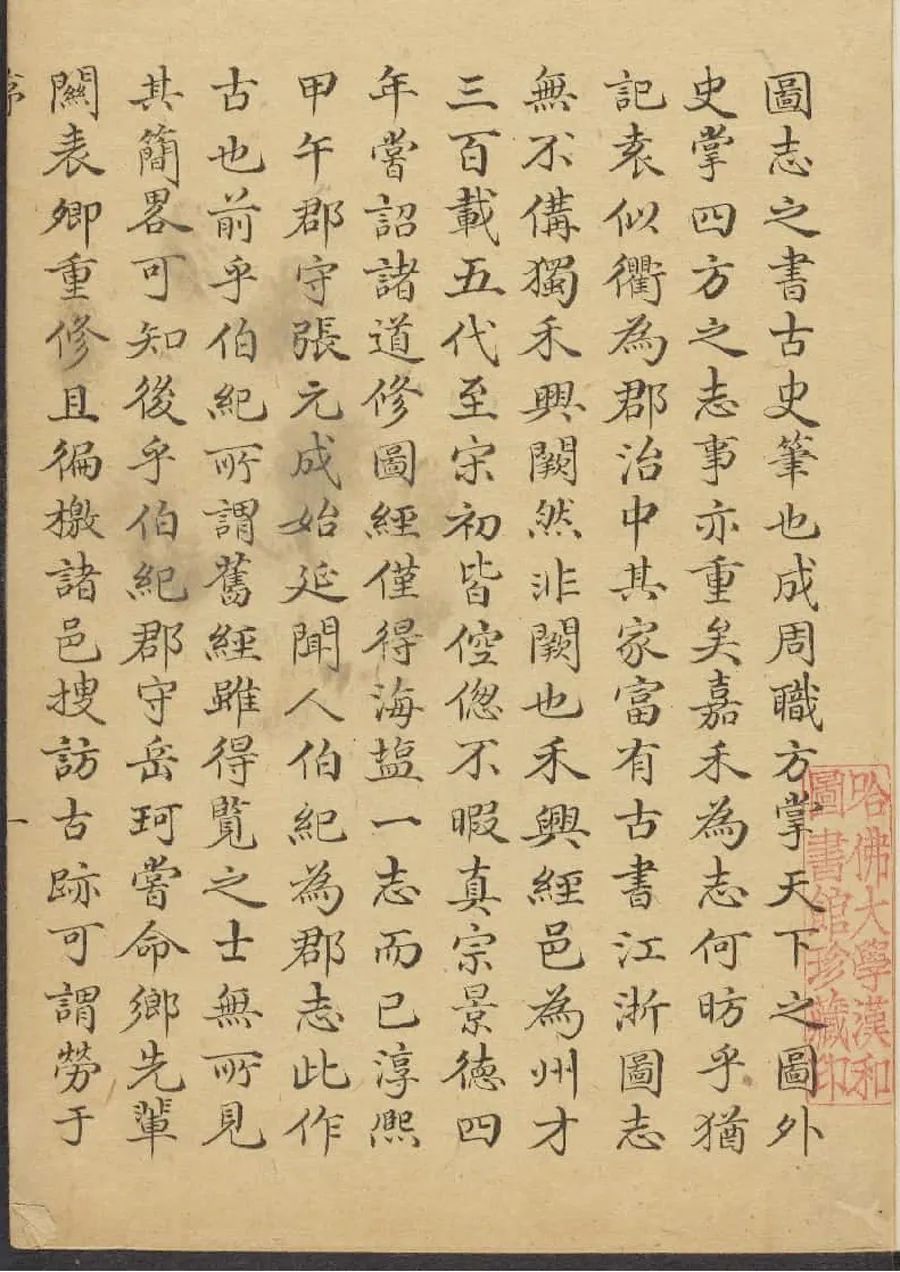 圖志之書古史筆也成周職方掌天下之圖外
史掌四方之志事亦重矣嘉禾為志何昉乎猶
記袁似衢為郡治中其家富有古書江浙圖志
無不備獨禾興闕然非闕也禾興經邑為州才
三百載五代至宋初皆倥傯不暇真宗景德四
年嘗詔諸道修圖經僅得海塩一志而已淳熙
甲午郡守張元成始延聞人伯紀為郡志此作
古也前乎伯紀所謂舊經雖得覧之士無所見
其簡畧可知後乎伯紀郡守岳珂嘗命鄉先輩
關表卿重修且徧檄諸邑搜訪古跡可謂勞于
序
一
哈佛大學漢和
圖書館珍藏印